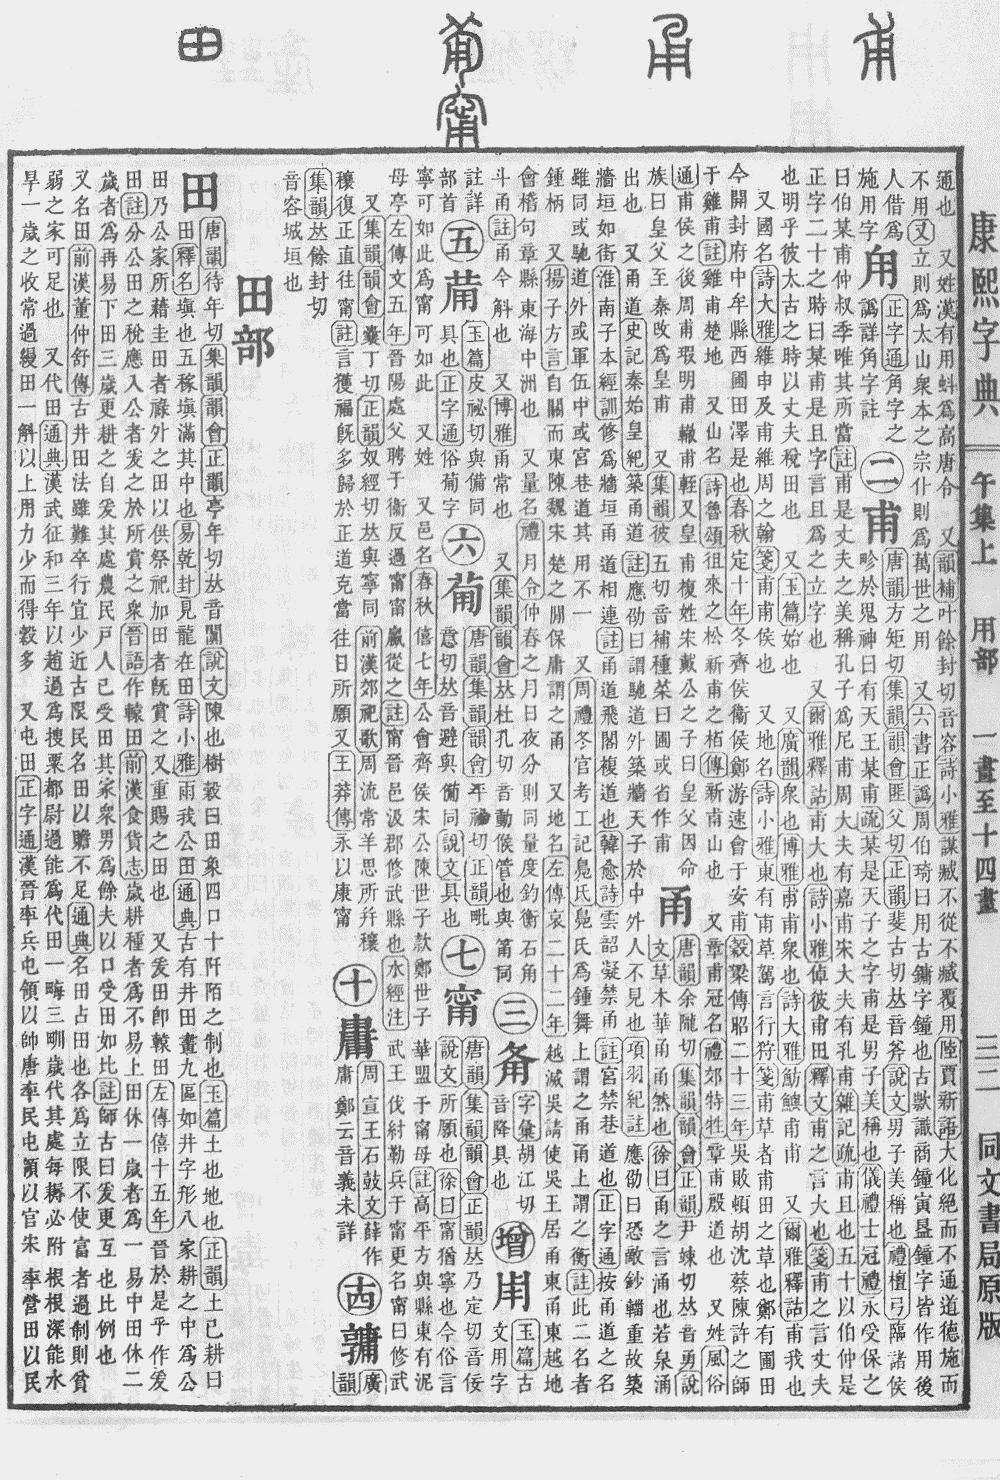 康熙字典 午集上 用部 一畫至十四畫 三二 同文書局原版
通也 又姓漢有用蚪為高唐令 又韻補叶餘封切音容詩小雅謀臧不從不臧覆用陸賈新語大化絕而不通道德施而
不用又立則為太山眾本之宗仆則為萬世之用 又六書正譌周伯琦曰用古鏞字鐘也古款識商鐘寅簋鐘字皆作用後
人借為施用字
甪 正字通角字之譌詳角字註
二
甫 唐韻方矩切集韻韻會匪父切正韻斐古切𠀤音斧說文男子美稱也禮檀弓臨諸侯
畛於鬼神曰有天王某甫疏某是天子之字甫是男子美稱也儀禮士冠禮永受保之
曰伯某甫仲叔季唯其所當註甫是丈夫之美稱孔子為尼甫周大夫有嘉甫宋大夫有孔甫雜記疏甫且也五十以伯仲是
正字二十之時曰某甫是且字言且為之立字也 又爾雅釋詁甫大也詩小雅倬彼甫田釋文甫之言大也箋甫之言丈夫
也明乎彼太古之時以丈夫稅田也 又玉篇始也 又廣韻眾也博雅甫甫眾也詩大雅魴鱮甫甫 又爾雅釋詁甫我也
又國名詩大雅維申及甫維周之翰箋甫甫侯也 又地名詩小雅東有甫草駕言行狩箋甫草者甫田之草也鄭有圃田
今開封府中牟縣西圃田澤是也春秋定十年冬齊侯衞侯鄭游速會于安甫穀梁傳昭二十三年吳敗頓胡沈蔡陳許之師
于雞甫註雞甫楚地 又山名詩魯頌徂來之松新甫之栢傳新甫山也 又章甫冠名禮郊特牲章甫殷道也 又姓風俗
通甫侯之後周甫瑕明甫轍甫輊又皇甫複姓宋戴公之子曰皇父因命
族曰皇父至秦改為皇甫 又集韻彼五切音補種菜曰圃或省作甫
甬 唐韻余隴切集韻韻會正韻尹竦切𠀤音勇說
文草木華甬甬然也徐曰甬之言涌也若泉涌
出也 又甬道史記秦始皇紀築甬道註應劭曰謂馳道外築牆天子於中外人不見也項羽紀註應劭曰恐敵鈔輜重故築
牆垣如街淮南子本經訓修為牆垣甬道相連註甬道飛閣複道也韓愈詩雲韶凝禁甬註宮禁巷道也正字通按甬道之名
雖同或馳道外或軍伍中或宮巷道其用不一 又周禮冬官考工記鳧氏鳧氏為鍾舞上謂之甬甬上謂之衡註此二名者
鍾柄 又揚子方言自關而東陳魏宋楚之閒保庸謂之甬 又地名左傳哀二十二年越滅吳請使吳王居甬東甬東越地
會稽句章縣東海中洲也 又量名禮月令仲春之月日夜分則同度量鈞衡石角
斗甬註甬今斛也 又博雅甬常也 又集韻韻會𠀤杜孔切音動侯管也與筩同
三
字彙胡江切音降具也
增
𤰃 玉篇古文用字
註詳部首
五
玉篇皮祕切與備同具也正字通俗葡字
六
葡 唐韻集韻韻會平祕切正韻毗
意切𠀤音避與備同說文具也
七
甯 唐韻集韻韻會正韻𠀤乃定切音佞
說文所願也徐曰甯猶寧也今俗言
寧可如此為甯可如此 又姓 又邑名春秋僖七年公會齊侯宋公陳世子款鄭世子華盟于甯母註高平方與縣東有泥
母亭左傳文五年晉陽處父聘于衞反過甯甯嬴從之註甯晉邑汲郡修武縣也水經注武王伐紂勒兵于甯更名甯曰修武
又集韻韻會囊丁切正韻奴經切𠀤與寧同前漢郊祀歌周流常羊思所幷穰
穰復正直往甯註言獲福旣多歸於正道克當往日所願又王莽傳永以康甯
十
周宣王石鼓文薛作庸鄭云音義未詳
十四
廣韻
集韻𠀤餘封切
音容城垣也
田部
田 唐韻待年切集韻韻會正韻亭年切𠀤音闐說文陳也樹穀曰田象四口十阡陌之制也玉篇土也地也正韻土已耕曰
田釋名塡也五稼塡滿其中也易乾卦見龍在田詩小雅雨我公田通典古有井田畫九區如井字形八家耕之中為公
田乃公家所藉圭田者祿外之田以供祭祀加田者旣賞之又重賜之田也 又爰田卽轅田左傳僖十五年晉於是乎作爰
田註分公田之稅應入公者爰之於所賞之眾晉語作轅田前漢食貨志歲耕種者為不易上田休一歲者為一易中田休二
歲者為再易下田三歲更耕之自爰其處農民戸人己受田其家眾男為餘夫以口受田如比註師古曰爰更互也比例也
又名田前漢董仲舒傳古井田法雖難卒行宜少近古限民名田以贍不足通典名田占田也各為立限不使富者過制則貧
弱之家可足也 又代田通典漢武征和三年以趙過為搜粟都尉過能為代田一畮三甽歲代其處每耨必附根根深能水
旱一歲之收常過縵田一斛以上用力少而得穀多 又屯田正字通漢晉率兵屯領以帥唐率民屯領以官宋率營田以民